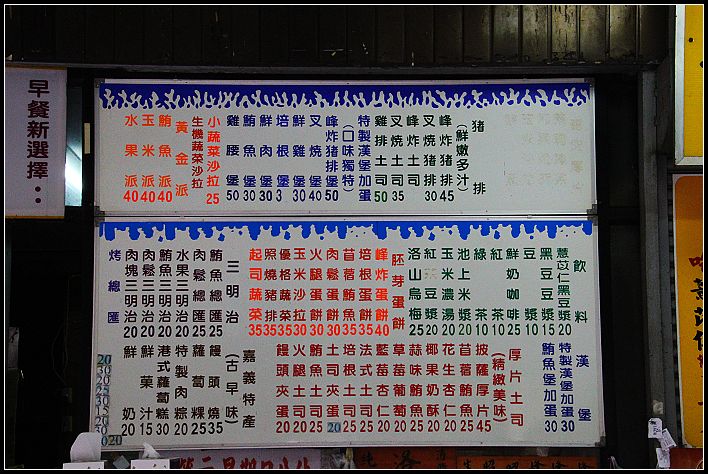 早餐新選擇：
猪排
(鮮嫩多汁)
峰炸猪排 45
叉燒猪排 30
峰炸土司
叉燒土司 35
雞排土司 50
特製漢堡加蛋
(口味獨特)
峰炸猪排堡 50
叉燒堡 40
鮮雞堡 30
培根堡 3
鮮肉堡 30
鮪魚堡 30
雞腰堡 50
小蔬菜沙拉 25
生機蔬菜沙拉
黃金派
鮪魚派 40
玉米派 40
水果派 40
飲料
薏苡仁黑豆漿 20
黑豆漿 15
豆漿 10
鮮奶咖啡 25
紅茶 10
綠茶 10
池上米漿 20
玉米濃湯 20
紅豆漿 20
洛山烏梅 25
胚芽蛋餅
峰炸蛋餅 40
培根蛋餅 35
苜蓿鮪魚 35
肉鬆蛋餅 30
火腿蛋餅 30
玉米沙拉 30
優格蔬菜 35
照燒豬排 35
起司蔬菜 35
三明治
鮪魚總匯 25
肉鬆總匯 25
水果三明治 20
鮪魚三明治 20
肉鬆三明治 20
肉塊三明治 20
烤總匯
漢堡
特製漢堡加蛋 30
鮪魚堡加蛋 30
厚片土司
(精緻美味)
披薩厚片 45
苜蓿鮪魚 25
花生杏仁 25
椰果奶酥 20
蒜味鮪魚 25
草莓葡萄 20
藍莓杏仁 20
法式土司 20
培根土司 20
土司夾蛋 20
鮪魚土司 20
火腿土司 20
饅頭夾蛋 20
嘉義特產
(古早味)
饅頭燒 35
蘿蔔粿 25
特製肉粽 20
港式蘿蔔糕 30
鮮菓汁 15
鮮奶 20